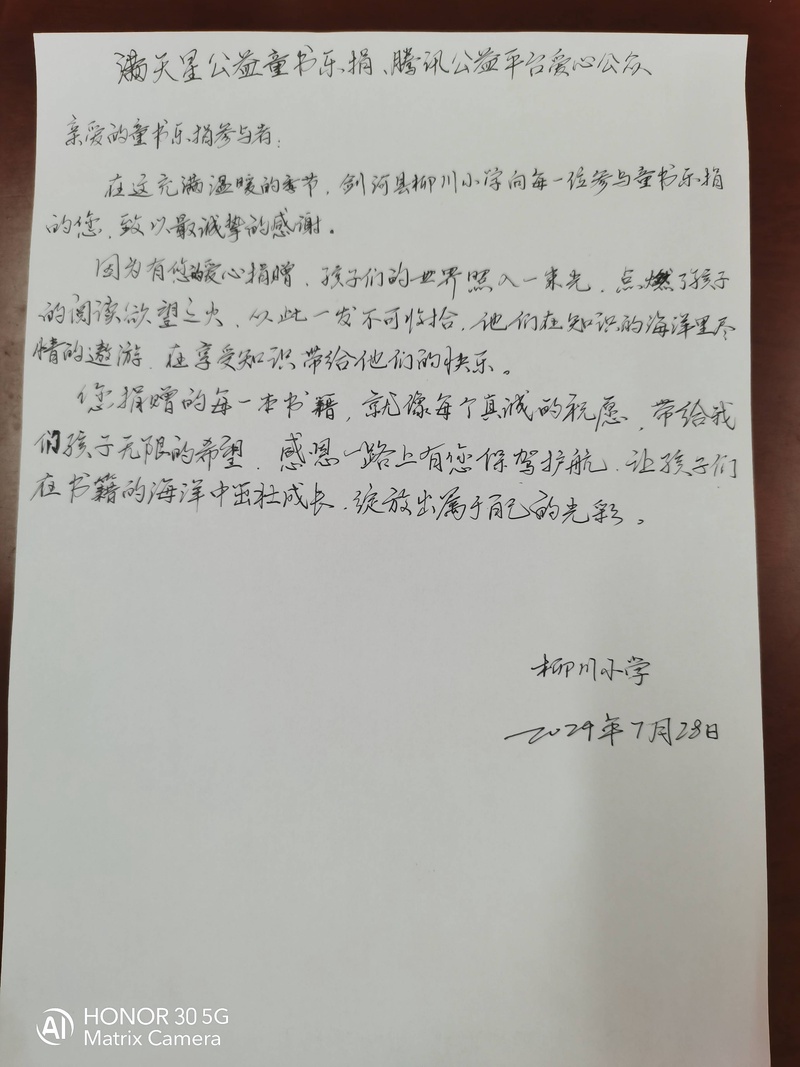 满天星公益童书乐捐、腾讯公益平台爱心公众
亲爱的童书乐捐参与者:
在这充满温暖的季节,剑河县柳川小学向每一位参与童书乐捐
的您,致以最诚挚的感谢。
因为有您的爱心捐赠,孩子们的世界照入一束光,点燃了孩子
的阅读欲望之火,从此一发不可收拾,他们在知识的海洋里尽
情的遨游,在享受知识带给他们的快乐。
您捐赠的每一本书籍,就像每个真诚的祝愿,带给我
们孩子无限的希望,感恩一路上有您保驾护航,让孩子们
在书籍的海洋中茁壮成长,绽放出属于自己的光彩。
柳川小学
2024年7月28日
HONOR 30 5G
Matrix Camera